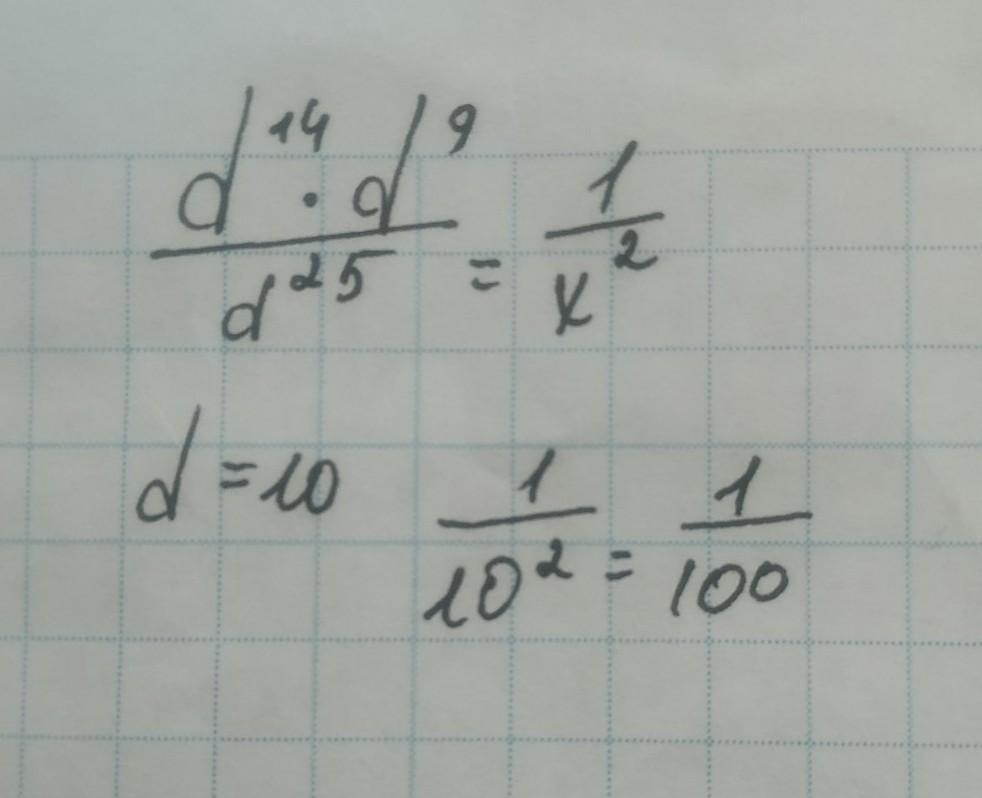 d¹⁴ · d⁹ / d²⁵ = 1 / x²
d = 10 1 / 10² = 1 / 100